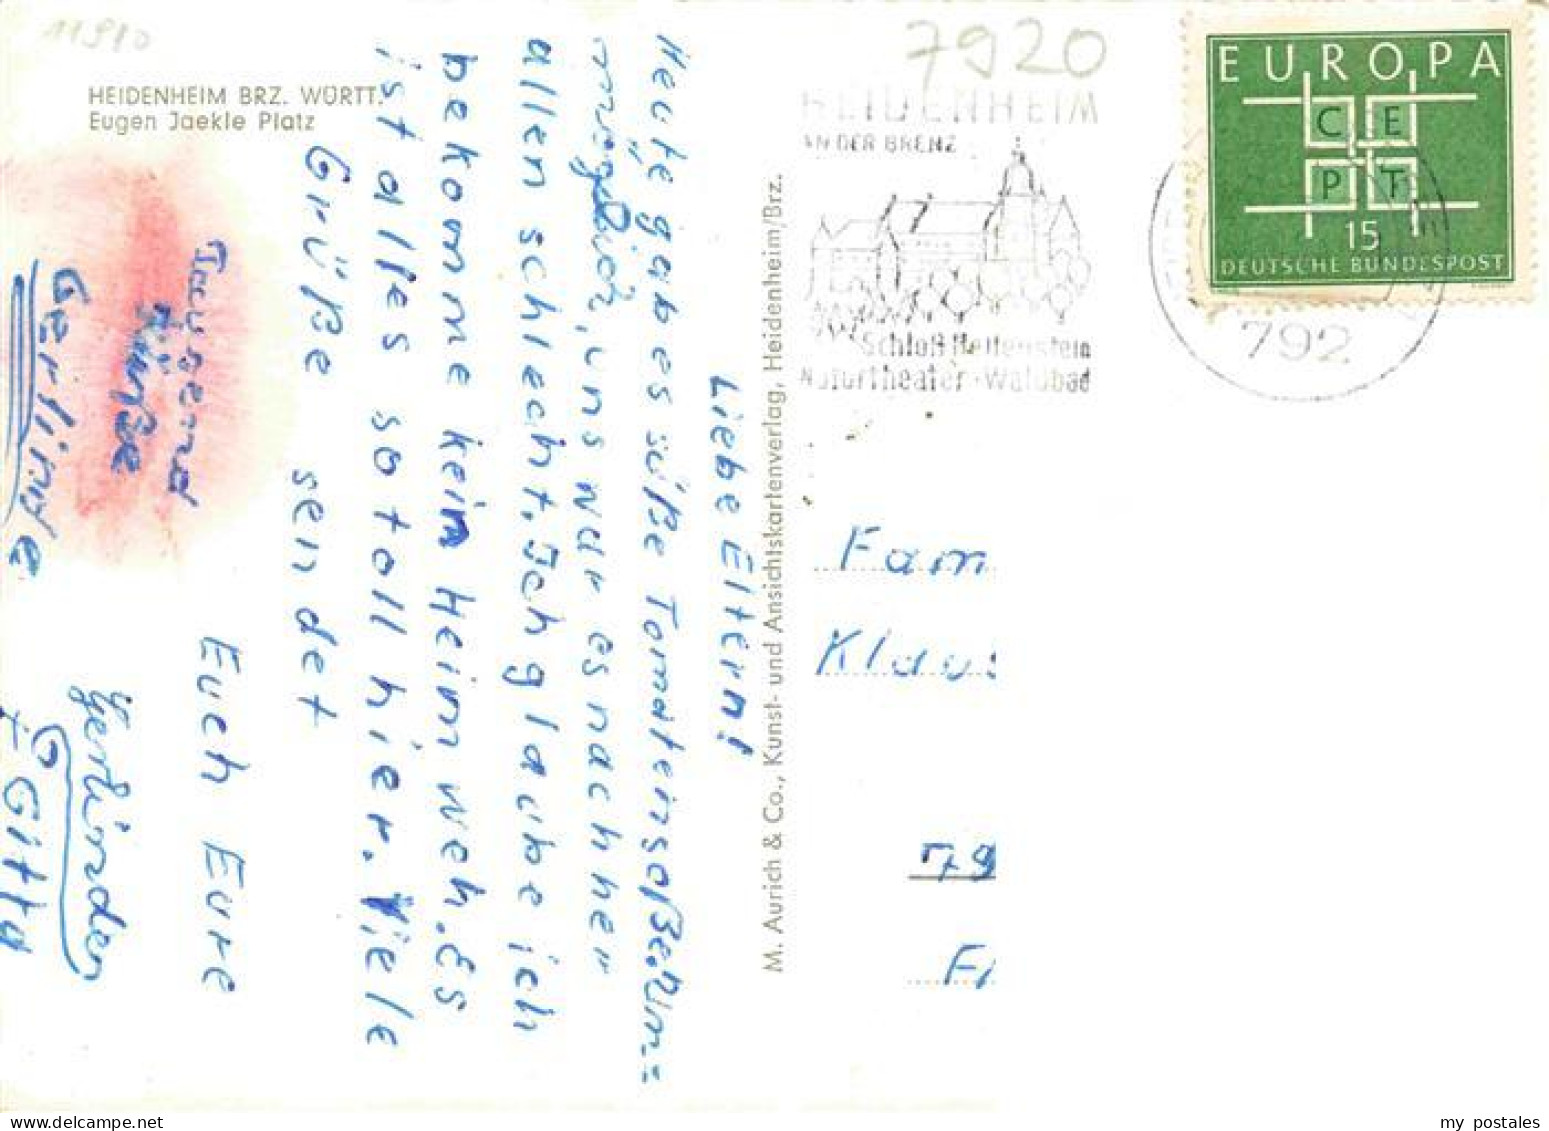 11910
HEIDENHEIM BRZ. WÜRTT.
Eugen Jaekle Platz
7920
HEIDENHEIM
AN DER BRENZ
Schloß Hellenstein
Naturtheater · Waldbad
EUROPA
CEPT
15
DEUTSCHE BUNDESPOST
792
M. Aurich & Co., Kunst- und Ansichtskartenverlag, Heidenheim/Brz.
Liebe Eltern!
Heute gab es süße Tomatensoße. Um=
möglich, uns war es nachher
allen schlecht. Ich glaube ich
bekomme kein Heimweh. Es
ist alles so toll hier. Viele
Grüße sendet
Euch Eure
Gerlinde
+ Gitta
Tausend
Küße
Gerlinde
Fam
Klaus
79